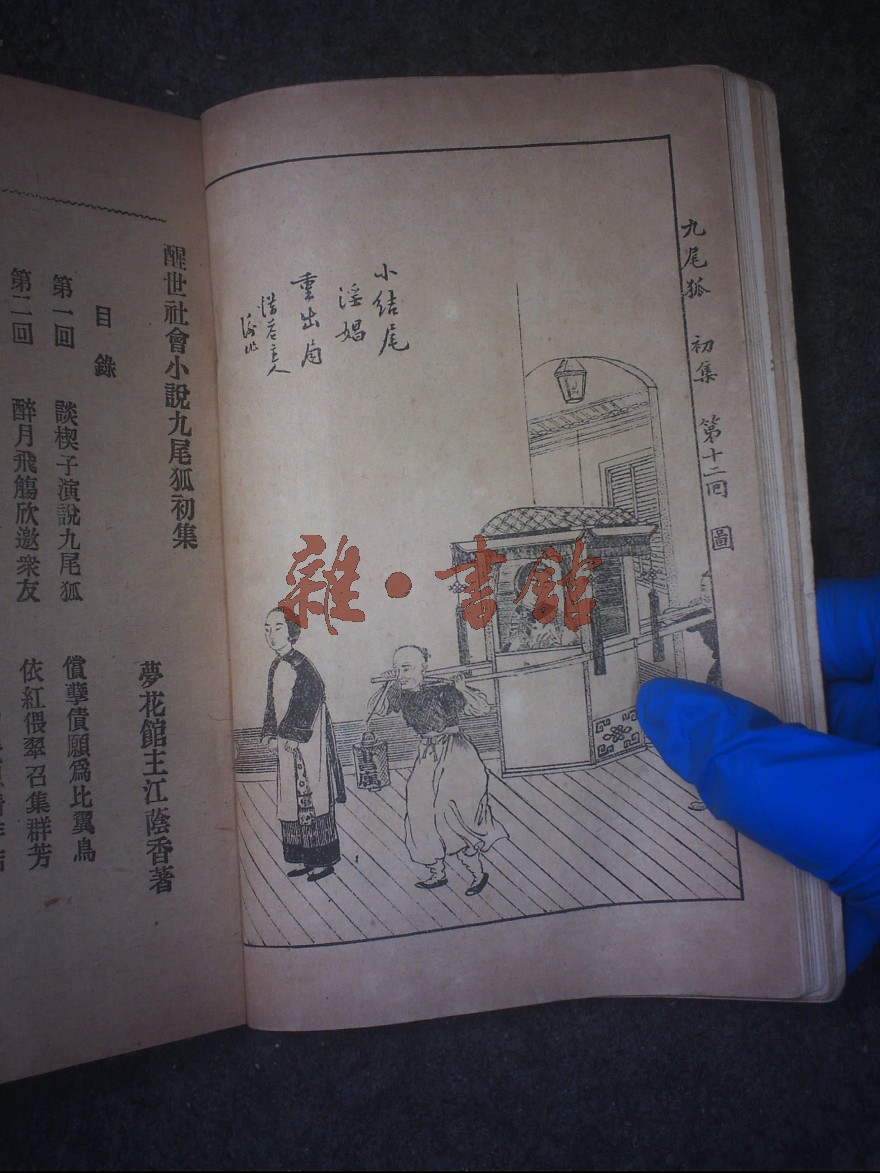 九尾狐　初集　第十二回　圖
小結尾
淫娼
重出局
惜花主人
醒世社會小說九尾狐初集
夢花館主江蔭香著
目錄
第一回　談楔子演說九尾狐　償孽債願爲比翼鳥
第二回　醉月飛觴欣邀衆友　依紅偎翠召集群芳
雜·書館